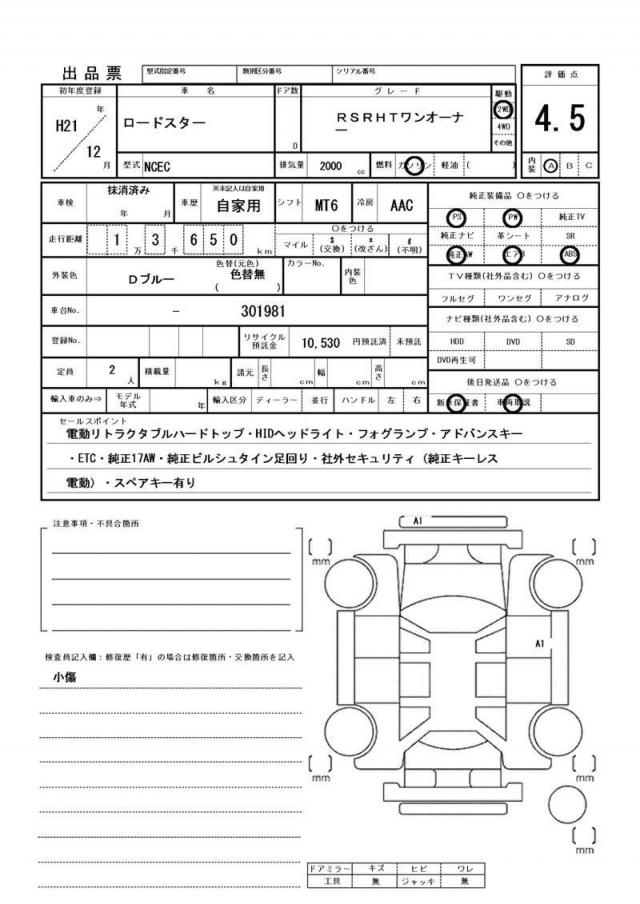 出品票 型式指定番号 類別区分番号 シリアル番号
評価点
4.5
内装 A B C
初年度登録 車名 ドア数 グレード 駆動
H21 年 12 月
ロードスター
D
RSRHTワンオーナー
2WD
4WD
その他
型式 NCEC 排気量 2000 cc 燃料 ガソリン 軽油 ( )
車検 抹消済み 年 月 車歴 ※未記入は自家用 自家用 シフト MT6 冷房 AAC
走行距離 1 万 3 千 6 5 0 km
○をつける
マイル $ (交換) x (改ざん) # (不明)
外装色 Dブルー 色替(元色) 色替無 ( ) カラーNo. 内装色
車台No. - 301981
登録No. リサイクル預託金 10,530 円預託済 未預託
定員 2 人 積載量 kg 諸元 長さ cm 幅 cm 高さ cm
輸入車のみ⇒ モデル年式 年 輸入区分 ディーラー 並行 ハンドル 左 右
純正装備品 ○をつける
PS PW 純正TV
純正ナビ 革シート SR
純正AW エアB ABS
TV種類(社外品含む) ○をつける
フルセグ ワンセグ アナログ
ナビ種類(社外品含む) ○をつける
HDD DVD SD
DVD再生可
後日発送品 ○をつける
新車保証書 車両取説
セールスポイント
電動リトラクタブルハードトップ・HIDヘッドライト・フォグランプ・アドバンスキー
・ETC・純正17AW・純正ビルシュタイン足回り・社外セキュリティ(純正キーレス
電動)・スペアキー有り
注意事項・不具合箇所
検査員記入欄:修復歴「有」の場合は修復箇所・交換箇所を記入
小傷
A1
[ ] mm
[ ] mm
A1
[ ] mm
[ ] mm
[ ] mm
ドアミラー キズ ヒビ ワレ
工具 無 ジャッキ 無